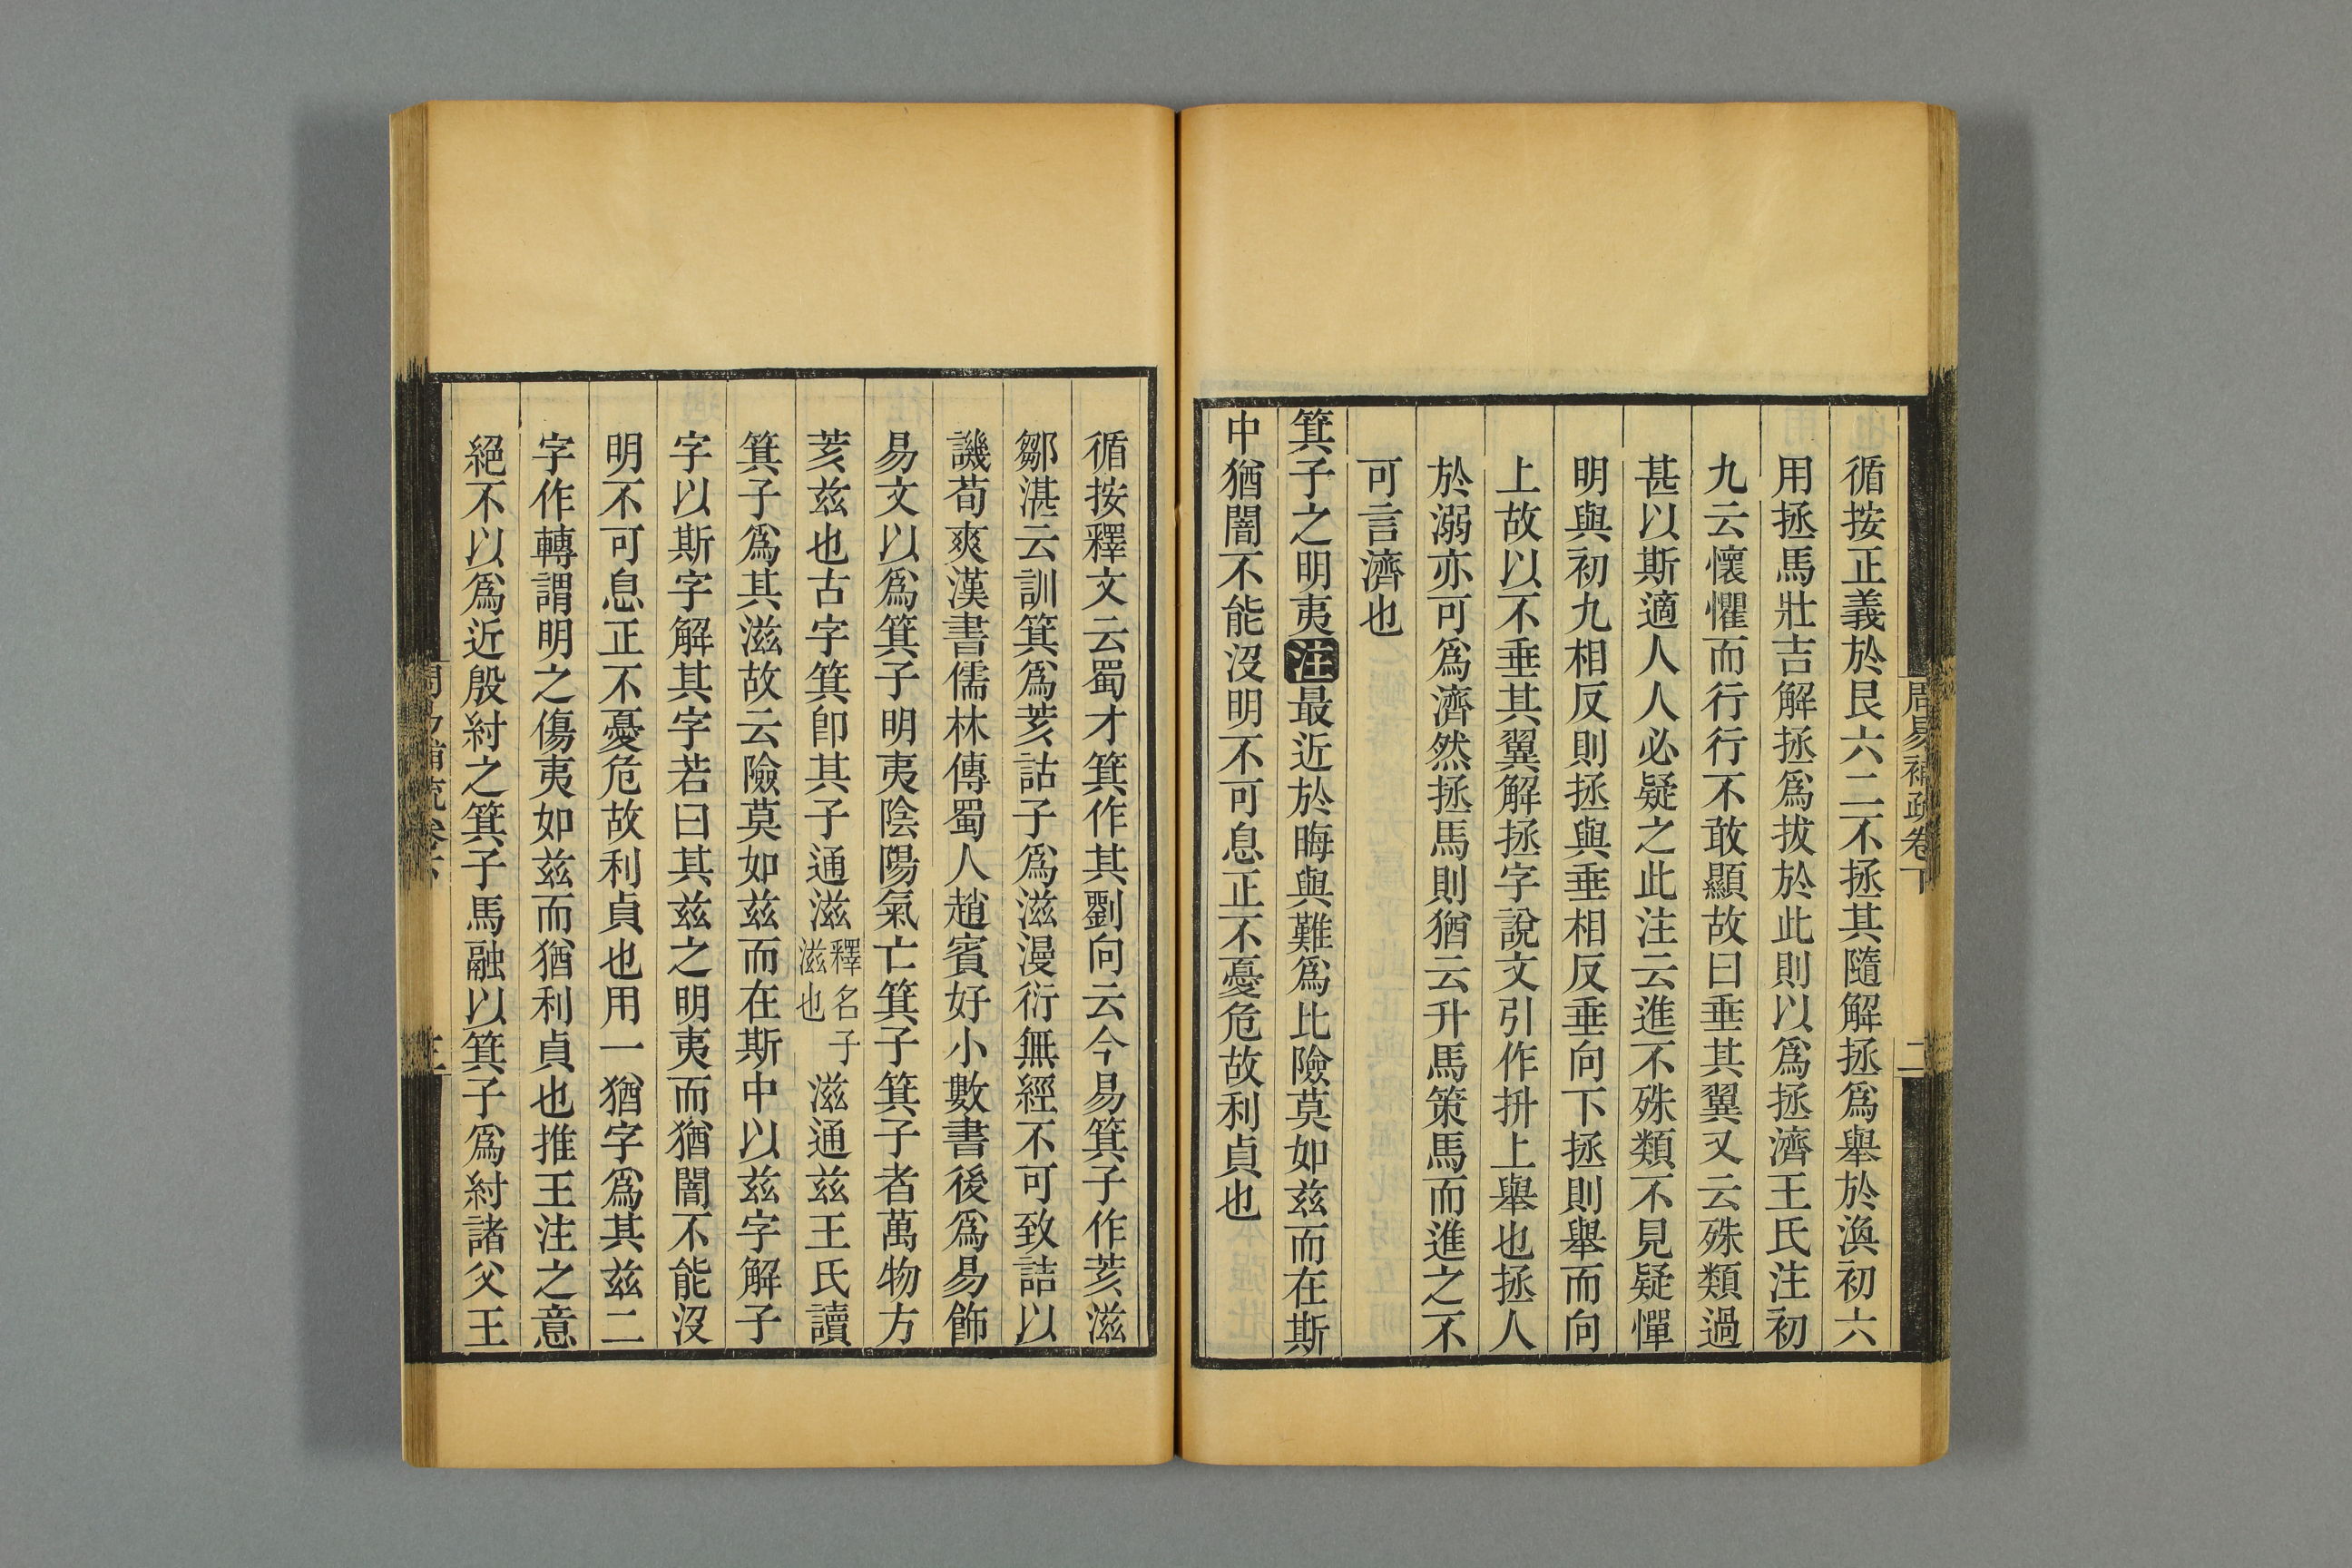 周易補疏卷下
二
循按正義於艮六二不拯其隨解拯爲舉於渙初六
用拯馬壯吉解拯爲拔於此則以爲拯濟王氏注初
九云懷懼而行行不敢顯故曰垂其翼又云殊類過
甚以斯適人人必疑之此注云進不殊類不見疑憚
明與初九相反則拯與垂相反垂向下拯則舉而向
上故以不垂其翼解拯字說文引作抍上舉也拯人
於溺亦可爲濟然拯馬則猶云升馬策馬而進之不
可言濟也
箕子之明夷注最近於晦與難爲比險莫如兹而在斯
中猶闇不能沒明不可息正不憂危故利貞也
循按釋文云蜀才箕作其劉向云今易箕子作荄滋
鄒湛云訓箕爲荄詁子爲滋漫衍無經不可致詰以
譏荀爽漢書儒林傳蜀人趙賓好小數書後爲易飾
易文以爲箕子明夷陰陽氣亡箕子箕子者萬物方
荄兹也古字箕卽其子通滋釋名子滋也滋通兹王氏讀
箕子爲其滋故云險莫如兹而在斯中以兹字解子
字以斯字解其字若曰其兹之明夷而猶闇不能沒
明不可息正不憂危故利貞也用一猶字爲其兹二
字作轉謂明之傷夷如兹而猶利貞也推王注之意
絕不以爲近殷紂之箕子馬融以箕子爲紂諸父王